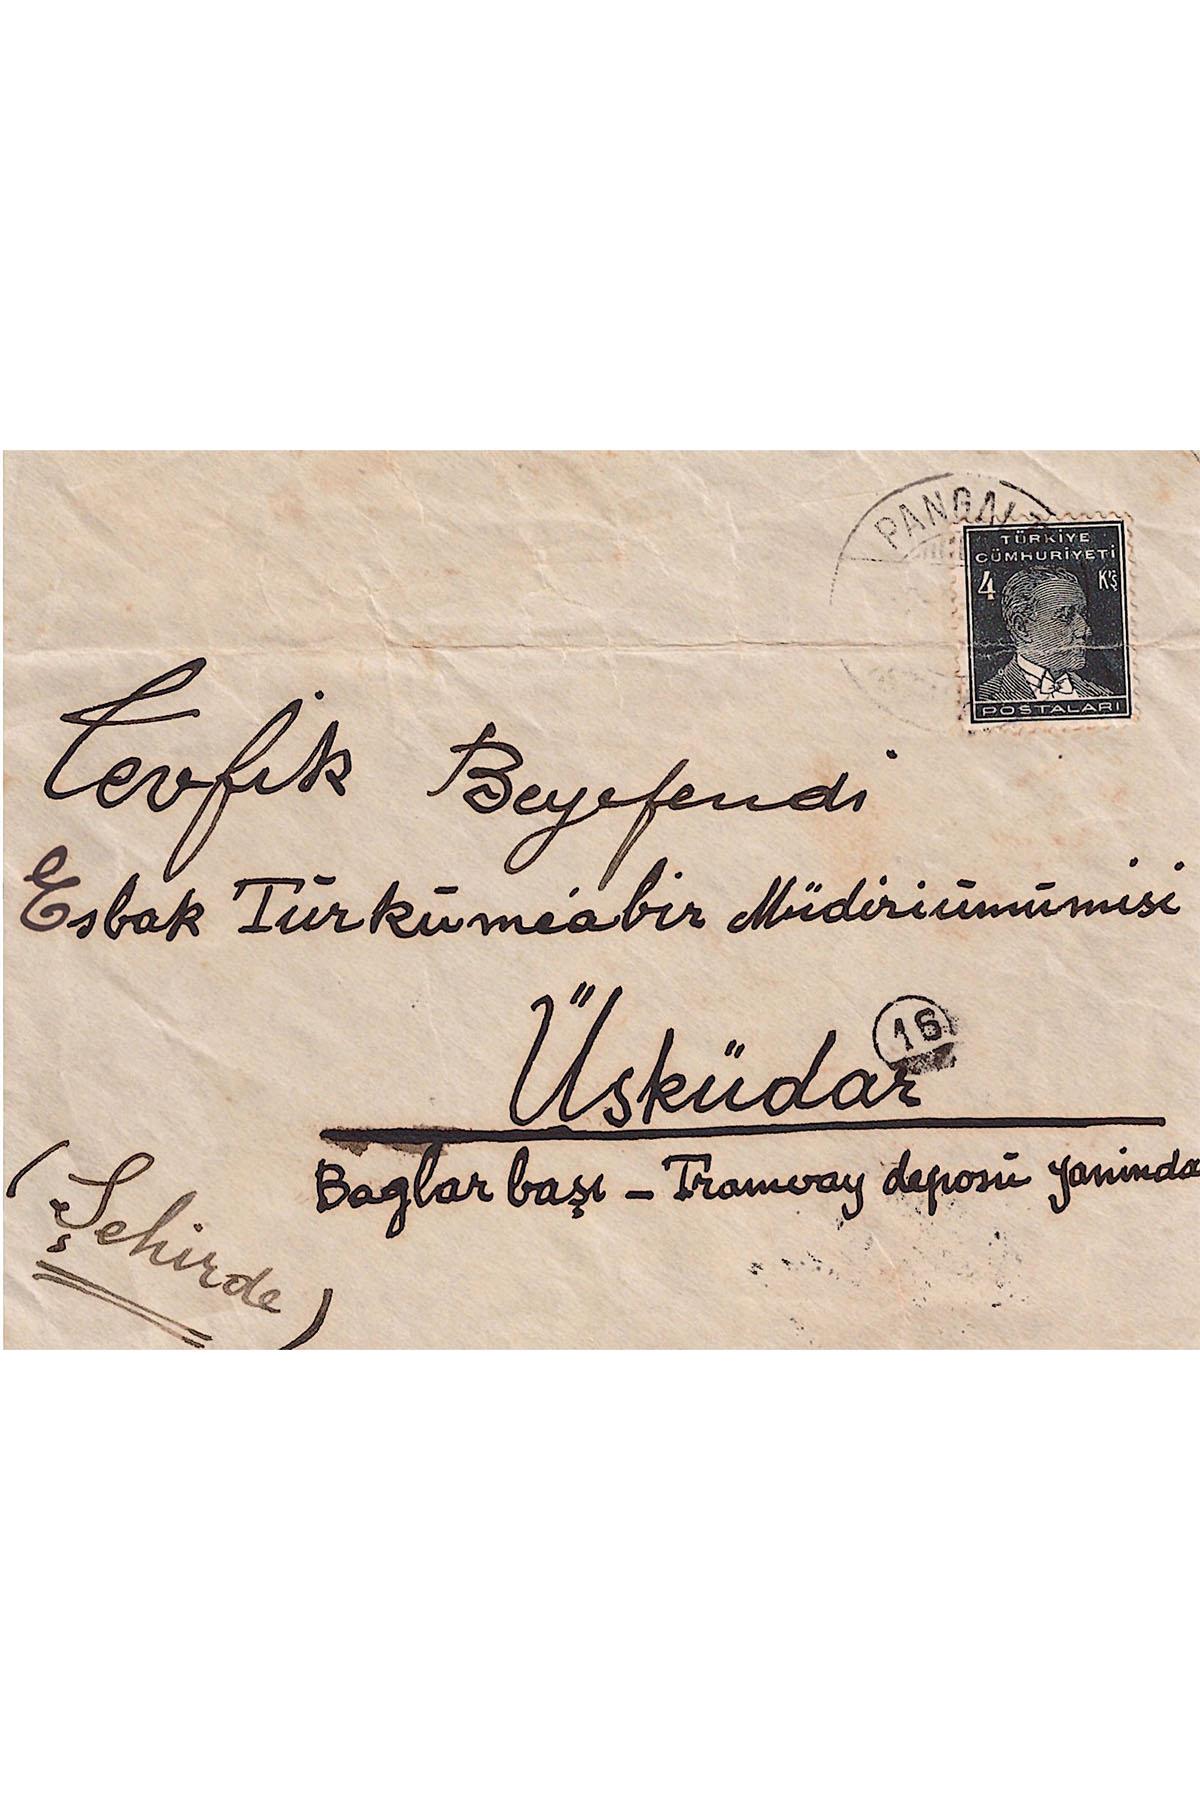 PANGAL
TÜRKİYE
CÜMHURİYETİ
4 K'Ş
POSTALARI
Tevfik Beyefendi
Esbak Tūrkūmeabir Müdiriūmūmisi
Üsküdar
16
Baglar başı - Tramvay deposū yanında
(Şehirde)